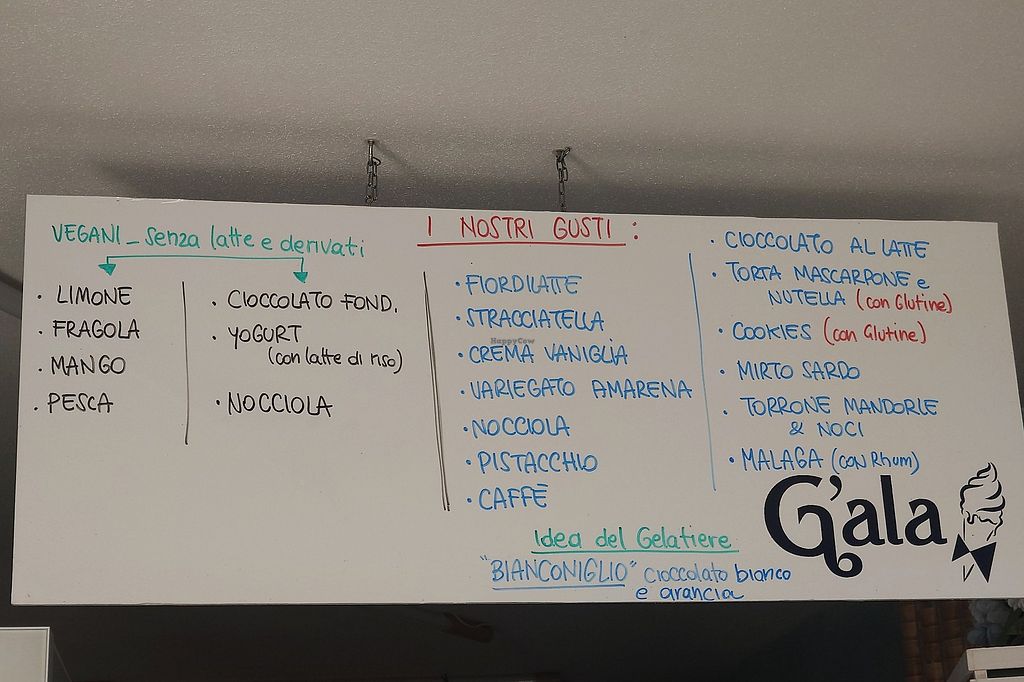 I NOSTRI GUSTI :
VEGANI_ senza latte e derivati
· LIMONE
· FRAGOLA
· MANGO
· PESCA
· CIOCCOLATO FOND.
· YOGURT
(con latte di riso)
· NOCCIOLA
· FIORDILATTE
· STRACCIATELLA
· CREMA VANIGLIA
· VARIEGATO AMARENA
· NOCCIOLA
· PISTACCHIO
· CAFFÈ
· CIOCCOLATO AL LATTE
· TORTA MASCARPONE e
NUTELLA (con Glutine)
· COOKIES (con Glutine)
· MIRTO SARDO
· TORRONE MANDORLE
& NOCI
· MALAGA (con Rhum)
Idea del Gelatiere
"BIANCONIGLIO" cioccolato bianco
e arancia
G'ala
HappyCow